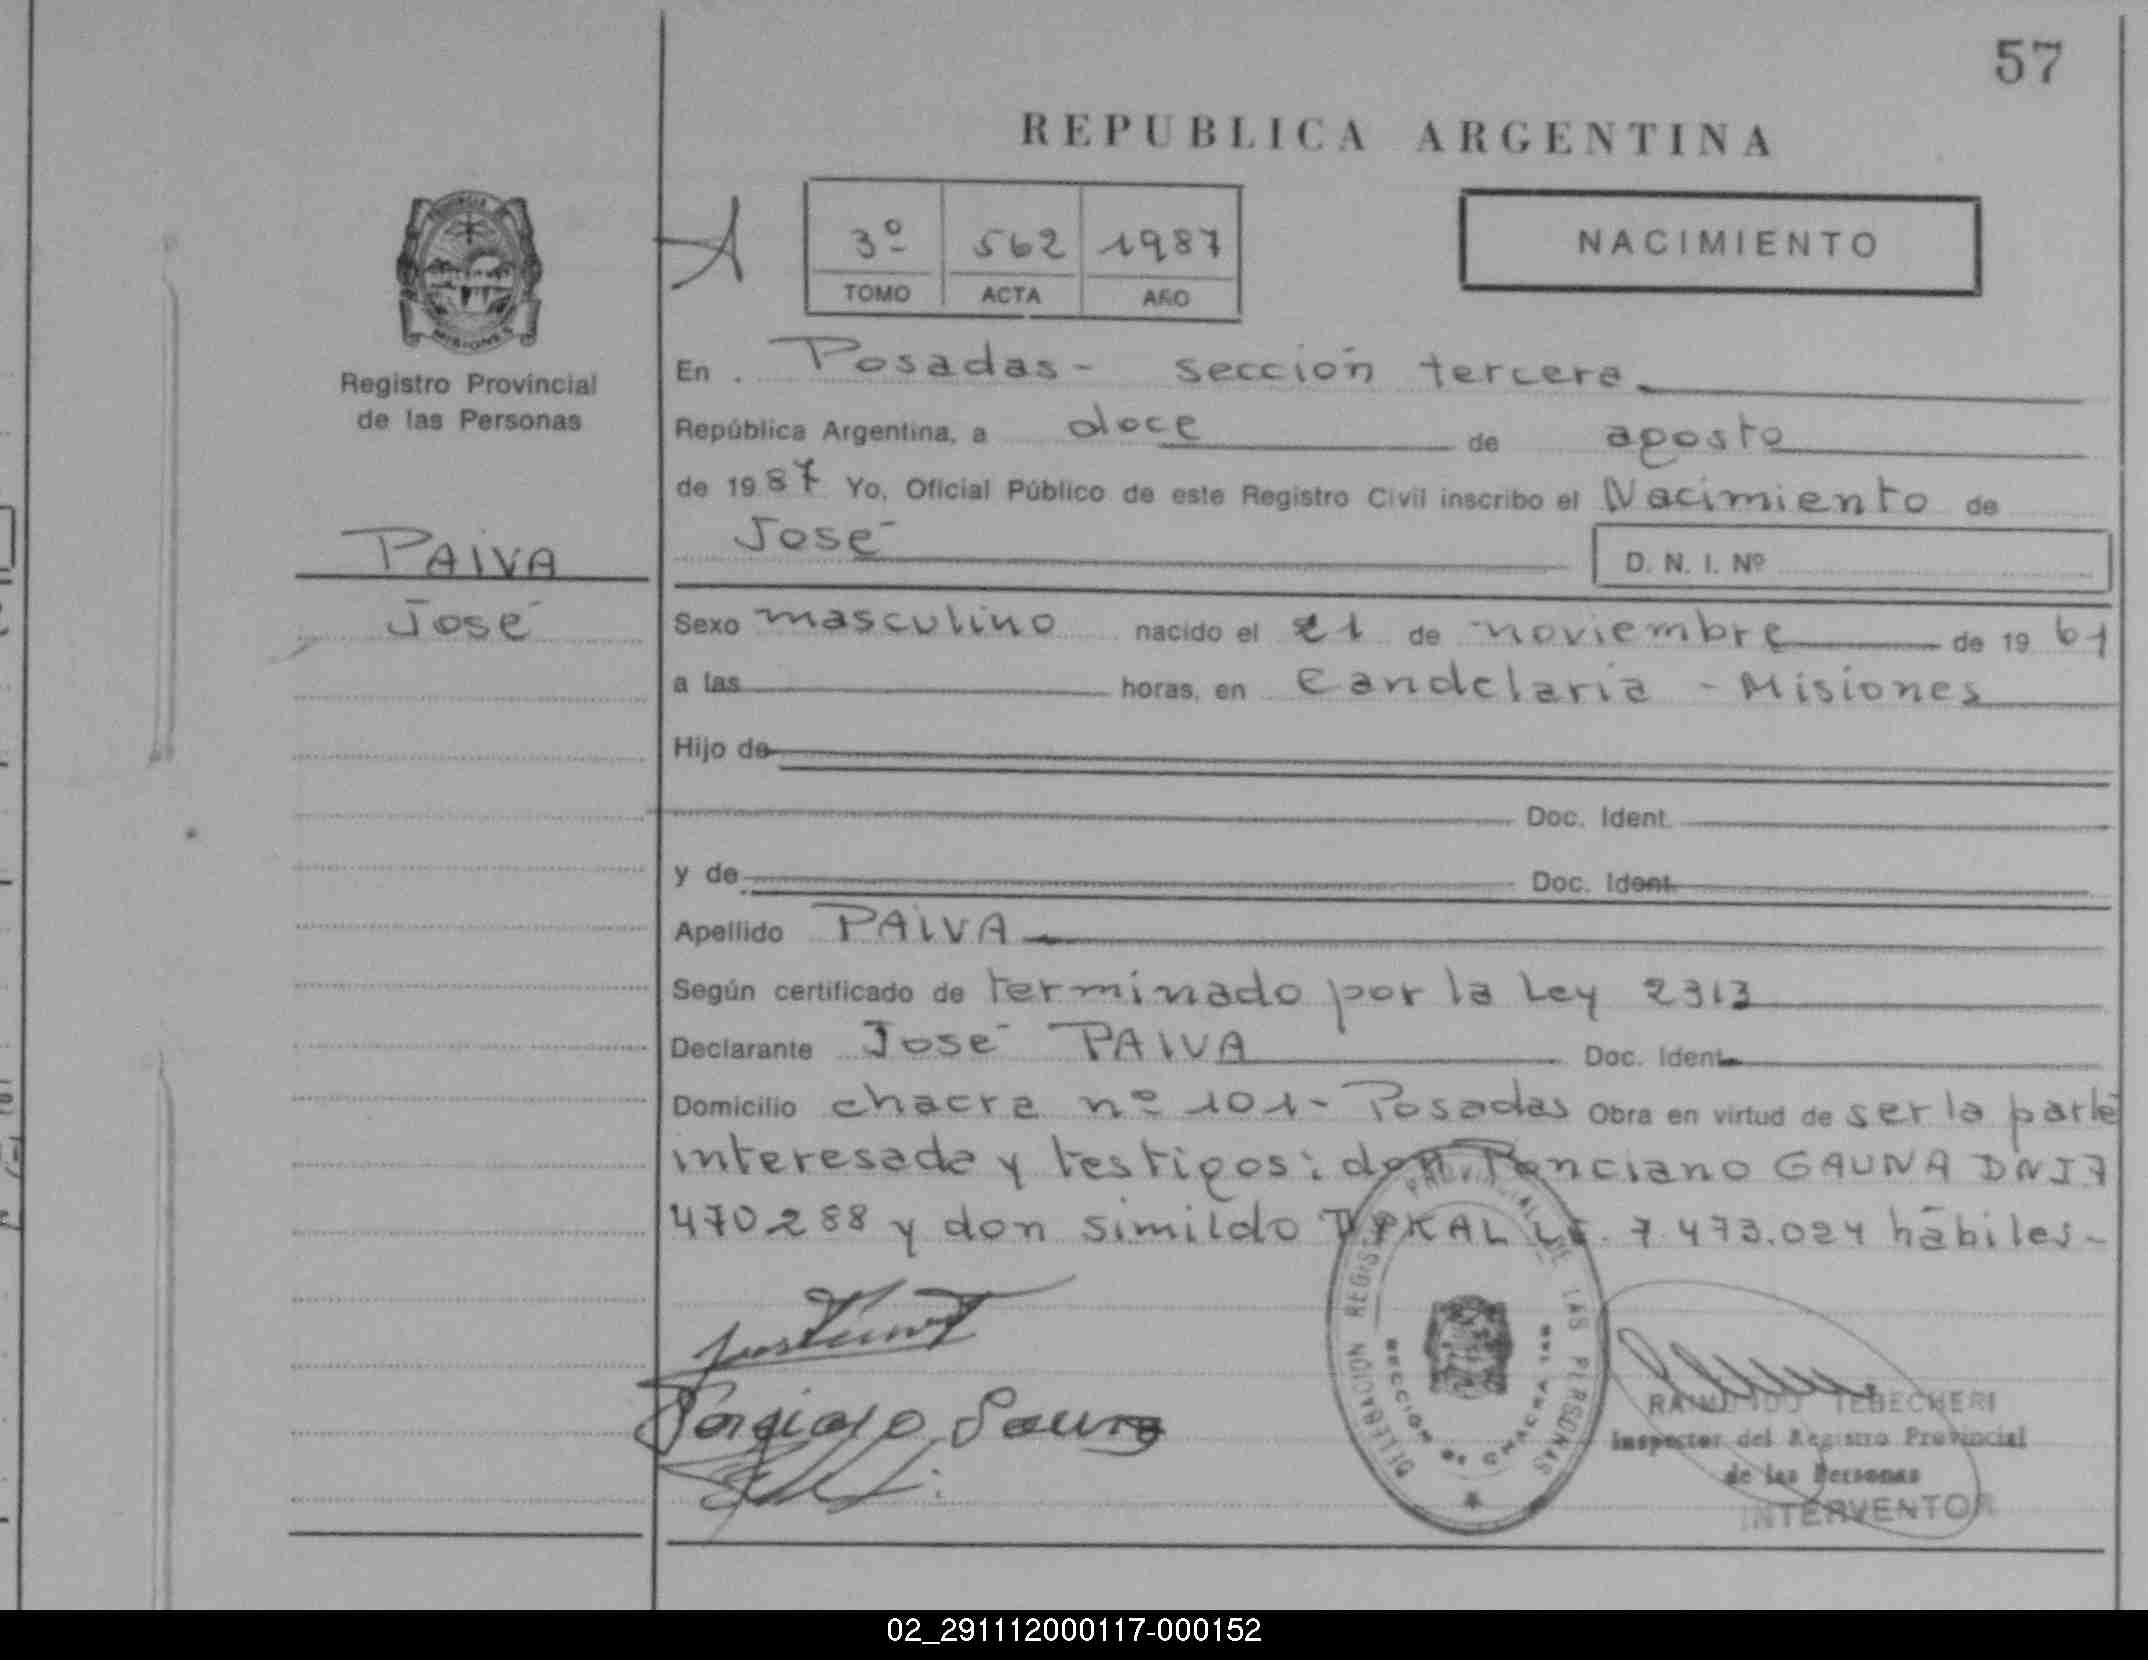 57
REPUBLICA ARGENTINA
3º 562 1987
TOMO ACTA AÑO
NACIMIENTO
PROVINCIA
MISIONES
Registro Provincial
de las Personas
PAIVA
José
En Posadas - sección tercera
República Argentina, a doce de agosto
de 1987 Yo, Oficial Público de este Registro Civil inscribo el Nacimiento de
José
D. N. I. Nº
Sexo masculino nacido el 21 de noviembre de 1961
a las horas, en Candelaria - Misiones
Hijo de
Doc. Ident.
y de Doc. Ident.
Apellido PAIVA
Según certificado de terminado por la Ley 2313
Declarante José PAIVA Doc. Ident.
Domicilio chacra nº 101 - Posadas Obra en virtud de ser la parte
interesada y testigos: don Ponciano GAUNA DNI 7
470288 y don Simildo 7.473.024 hábiles -
DELEGACION REGISTRO PROVINCIAL DE LAS PERSONAS
SECCION 3a CHACRA 145
RAIMUNDO TEBECHERI
Inspector del Registro Provincial
de las Personas
INTERVENTOR
02_291112000117-000152